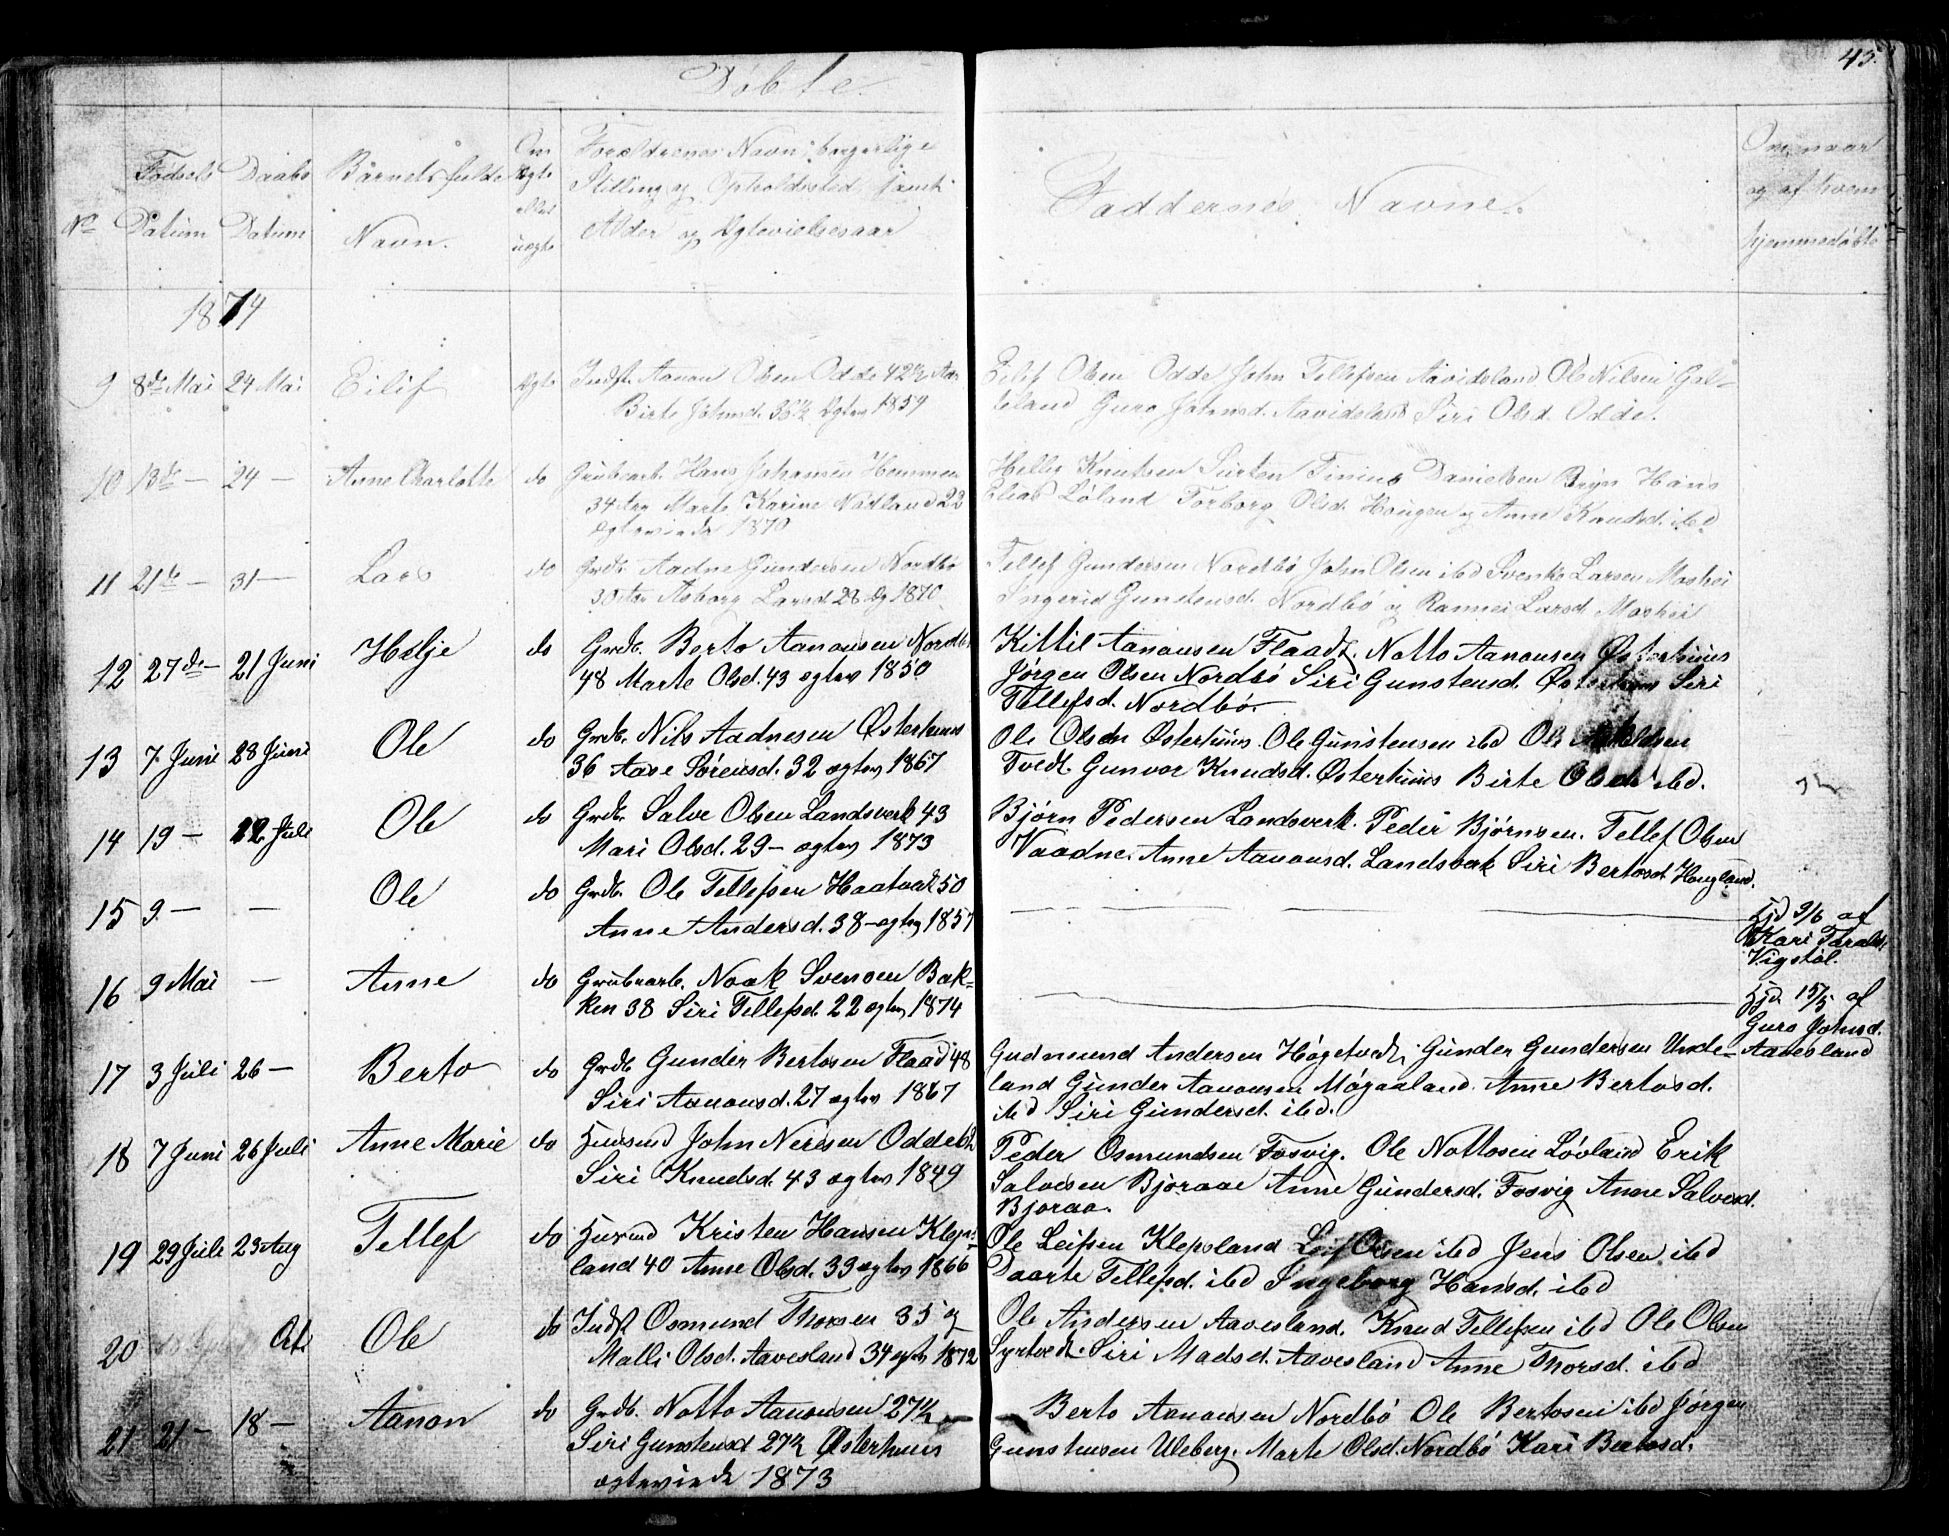 45.
Döbte.
No
Födsels Datum
Daabs Datum
Barnets fulde Navn.
Om Ægte eller uægte
Forældrenes Navn, borgerlige
Stilling og Opholdssted samt
Alder og Ægtevielsesaar
Faddernes Navne.
Om, naar
og af hvem
hjemmedöbte
1874
9 8de Mai 24 Mai Eilif Ægte Indst. Aanon Olsen Odde 42½ Aar
Birte Johnsd. 36½ Ægtev 1859
Eilif Olsen Odde John Tellefsen Aavidsland Ole Nilsen
Guro Johnsd. Aavidsland Siri Olsd. Odde.
10 13de — 24 — Anne Charlotte do Grubearb. Hans Johansen Hommen
34 Aar Marte Karine Nadland 22
Ægteviede 1870
Helleg Knutsen Tinius Danielsen Bryn Hans
Elias Löland Torborg Olsd. Hougen og Anne Knutsd. ibd
11 21de — 31 — Lars do Grdb. Aadne Gundersen Nordbö
30 Aar Asborg Larsd. 28 Æg 1870
Tellef Gundersen Nordbö John Olsen ibd Svenke Larsen Moshei
Ingerid Gunstensd. Nordbö og Rannei Larsd. Moshei
12 27de — 21 Juni Helje do Grdb. Berto Aanonsen Nordbö
48 Marte Olsd. 43 ægtev 1850
Kittil Aanonsen Flaadt. Notto Aanonsen Østerhuus
Jørgen Olsen Nordbö Siri Gunstensd. Østerhuus Siri
Tellefsd. Nordbö.
13 7 Juni 28 Juni Ole do Grdb. Nils Aadnesen Østerhuus
36 Aase Sörensd. 32 ægtev 1867
Ole Olsen Østerhuus. Ole Gunstensen ibd Ole
Tvedt. Gunvor Knudsd. Østerhuus Birte Olsd. ibd.
14 19 — 12 Juli Ole do Grdb. Salve Olsen Landsverk 43
Mari Olsd. 29 — ægtev 1873
Bjørn Pedersen Landsverk. Peder Bjørnsen. Tellef Olsen
Vaadne. Anne Aanonsd. Landsverk Siri Bertosd. Hougland.
15 9 — — Ole do Grdb. Ole Tellefsen Haatvedt 50
Anne Andersd. 38 — ægtev 1857
Hjd 9/6 af
Kari Taralds.
Vigstöl.
16 9 Mai — Anne do Grubearb. Noak Svensen Bak-
ken 38 Siri Tellefsd. 22 ægtev 1874
Hjd. 15/5 af
Guro Johnsd.
Aavesland
17 3 Juli 26 — Berto do Grdb. Gunder Bertosen Flaad 48
Siri Aanonsd. 27 ægtev 1867
Gudmund Andersen Høgetvedt. Gunder Gundersen Unde-
land Gunder Aanonsen Mögaaland. Anne Bertosd.
ibd Siri Gundersd. ibd.
18 7 Juni 26 Juli Anne Marie do Huusmd John Nersen Odde
Siri Knudsd. 43 ægtev 1849
Peder Osmundsen Fosvig. Ole Nottosen Lövland Erik
Salvesen Bjoraae Anne Gundersd. Fosvig Anne Salvesd.
Bjoraa.
19 29 Juli 23 Aug Tellef do Husmd Kristen Hansen Kleps-
land 40 Anne Olsd. 33 ægtev 1866
Ole Leifsen Klepsland Leif Olsen ibd Jens Olsen ibd
Daarte Tellefsd. ibd Ingeborg Hansd. ibd
20 Ole do Indst Osmund Thorsen 35 og
Malli Olsd. Aavesland 34 ægtev 1872
Ole Andersen Aavesland. Knud Tellefsen ibd Ole Olsen
Syrtvedt. Siri Madsd. Aavesland Anne Thorsd. ibd
21 21 — 18 — Aanon do Grdb. Notto Aanonsen 27½
Siri Gunstensd 27½ Østerhuus
ægteviede 1873
Berto Aanonsen Nordbö Ole Bertosen ibd Jørgen
Gunstensen Uleberg. Marte Olsd. Nordbö Kari Bertosd.